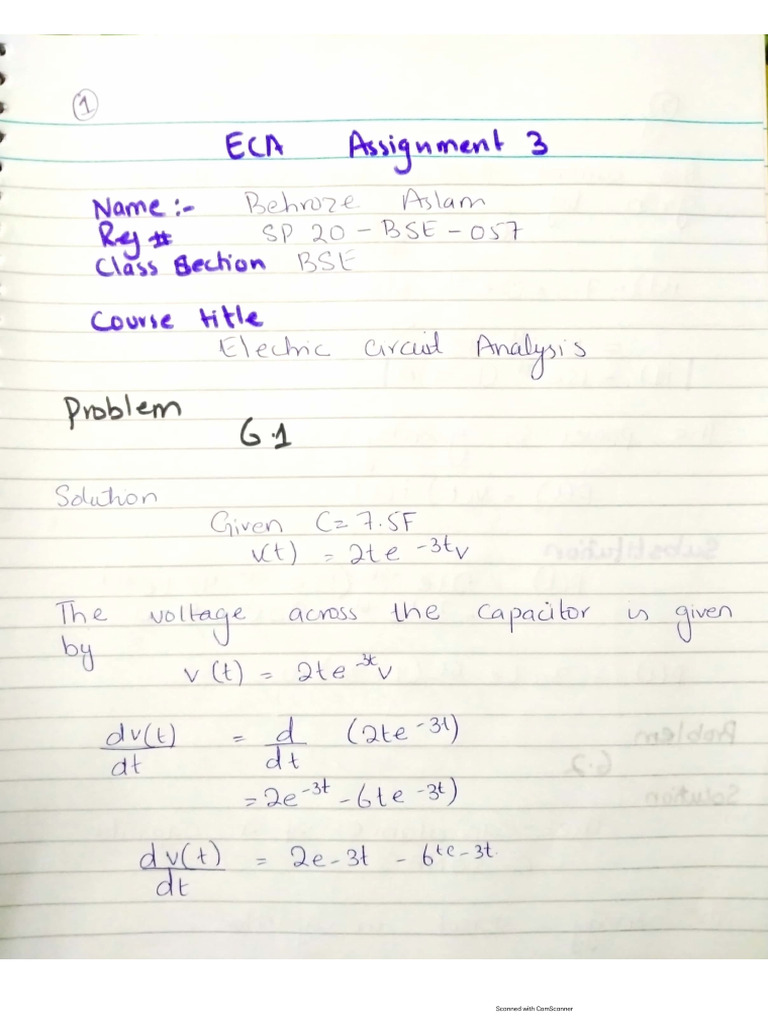 1
ECA Assignment 3
Name :- Behroze Aslam
Reg # SP 20 - BSE - 057
Class Section BSE
Course title
Electric Circuit Analysis
Problem
6.1
Solution
Given C = 7.5F
v(t) = 2te^-3t v
The voltage across the capacitor is given
by
v(t) = 2te^-3t v
dv(t)/dt = d/dt (2te^-3t)
= 2e^-3t - 6te^-3t)
dv(t)/dt = 2e-3t - 6^te-3t.
Scanned with CamScanner